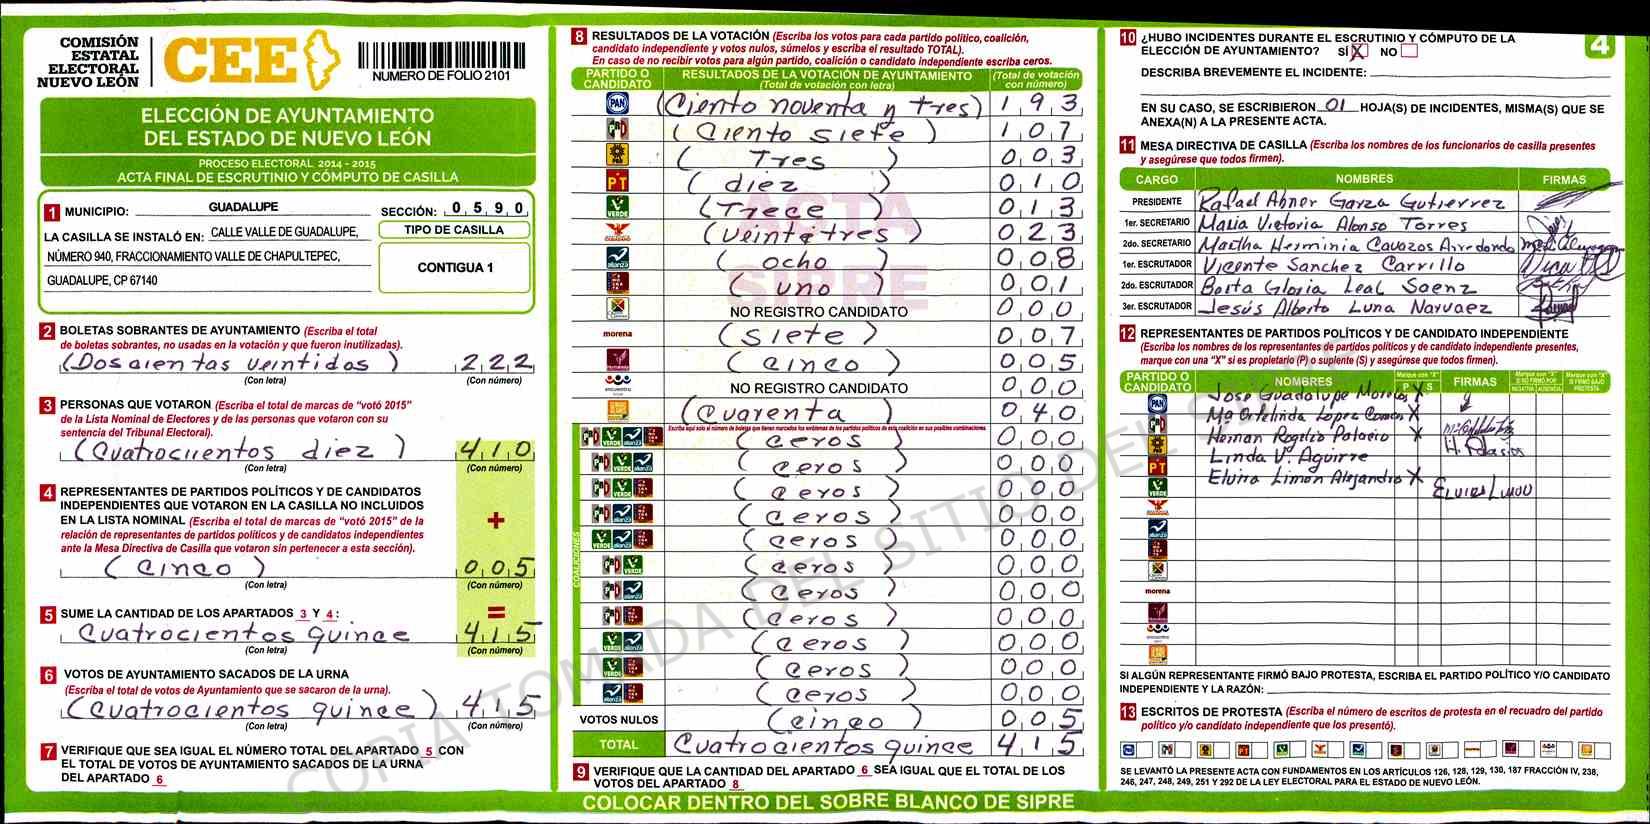 COMISIÓN
ESTATAL
ELECTORAL
NUEVO LEÓN
CEE
NUMERO DE FOLIO 2101
ELECCIÓN DE AYUNTAMIENTO
DEL ESTADO DE NUEVO LEÓN
PROCESO ELECTORAL 2014 - 2015
ACTA FINAL DE ESCRUTINIO Y CÓMPUTO DE CASILLA
1 MUNICIPIO: GUADALUPE SECCIÓN: 0 5 9 0
LA CASILLA SE INSTALÓ EN: CALLE VALLE DE GUADALUPE,
NÚMERO 940, FRACCIONAMIENTO VALLE DE CHAPULTEPEC,
GUADALUPE, CP 67140
TIPO DE CASILLA
CONTIGUA 1
2 BOLETAS SOBRANTES DE AYUNTAMIENTO (Escriba el total
de boletas sobrantes, no usadas en la votación y que fueron inutilizadas).
(Doscientas veintidos) 2 2 2
(Con letra) (Con número)
3 PERSONAS QUE VOTARON (Escriba el total de marcas de "votó 2015"
de la Lista Nominal de Electores y de las personas que votaron con su
sentencia del Tribunal Electoral).
(Cuatrocientos diez) 4 1 0
(Con letra) (Con número)
4 REPRESENTANTES DE PARTIDOS POLÍTICOS Y DE CANDIDATOS
INDEPENDIENTES QUE VOTARON EN LA CASILLA NO INCLUIDOS
EN LA LISTA NOMINAL (Escriba el total de marcas de "votó 2015" de la
relación de representantes de partidos políticos y de candidatos independientes
ante la Mesa Directiva de Casilla que votaron sin pertenecer a esta sección).
+
(Cinco) 0 0 5
(Con letra) (Con número)
5 SUME LA CANTIDAD DE LOS APARTADOS 3 Y 4: =
Cuatrocientos quince 4 1 5
(Con letra) (Con número)
6 VOTOS DE AYUNTAMIENTO SACADOS DE LA URNA
(Escriba el total de votos de Ayuntamiento que se sacaron de la urna).
(Cuatrocientos quince) 4 1 5
(Con letra) (Con número)
7 VERIFIQUE QUE SEA IGUAL EL NÚMERO TOTAL DEL APARTADO 5 CON
EL TOTAL DE VOTOS DE AYUNTAMIENTO SACADOS DE LA URNA
DEL APARTADO 6
8 RESULTADOS DE LA VOTACIÓN (Escriba los votos para cada partido político, coalición,
candidato independiente y votos nulos, súmelos y escriba el resultado TOTAL).
En caso de no recibir votos para algún partido, coalición o candidato independiente escriba ceros.
PARTIDO O CANDIDATO RESULTADOS DE LA VOTACIÓN DE AYUNTAMIENTO (Total de votación con letra) (Total de votación con número)
PAN (Ciento noventa y tres) 1 9 3
PRI (Ciento siete) 1 0 7
PRD (Tres) 0 0 3
PT (diez) 0 1 0
VERDE (Trece) 0 1 3
(veintitres) 0 2 3
alianza (ocho) 0 0 8
(uno) 0 0 1
NO REGISTRO CANDIDATO 0 0 0
morena (siete) 0 0 7
(cinco) 0 0 5
encuentro NO REGISTRO CANDIDATO 0 0 0
(Cuarenta) 0 4 0
Escriba aquí solo el número de boletas que tienen marcados los emblemas de los partidos políticos de esta coalición en sus posibles combinaciones.
COALICIONES
(ceros) 0 0 0
(ceros) 0 0 0
(ceros) 0 0 0
(ceros) 0 0 0
(ceros) 0 0 0
(ceros) 0 0 0
(ceros) 0 0 0
(ceros) 0 0 0
(ceros) 0 0 0
(ceros) 0 0 0
(ceros) 0 0 0
VOTOS NULOS (cinco) 0 0 5
TOTAL Cuatrocientos quince 4 1 5
9 VERIFIQUE QUE LA CANTIDAD DEL APARTADO 6 SEA IGUAL QUE EL TOTAL DE LOS
VOTOS DEL APARTADO 8
ACTA
SIPRE
COPIA TOMADA DEL SITIO DEL SIPRE
COLOCAR DENTRO DEL SOBRE BLANCO DE SIPRE
10 ¿HUBO INCIDENTES DURANTE EL ESCRUTINIO Y CÓMPUTO DE LA
ELECCIÓN DE AYUNTAMIENTO? SÍ X NO
4
DESCRIBA BREVEMENTE EL INCIDENTE:
EN SU CASO, SE ESCRIBIERON 01 HOJA(S) DE INCIDENTES, MISMA(S) QUE SE
ANEXA(N) A LA PRESENTE ACTA.
11 MESA DIRECTIVA DE CASILLA (Escriba los nombres de los funcionarios de casilla presentes
y asegúrese que todos firmen).
CARGO NOMBRES FIRMAS
PRESIDENTE Rafael Abner Garza Gutierrez
1er. SECRETARIO Maria Victoria Alonso Torres
2do. SECRETARIO Martha Herminia Cavazos Arredondo
1er. ESCRUTADOR Vicente Sanchez Carrillo
2do. ESCRUTADOR Berta Gloria Leal Saenz
3er. ESCRUTADOR Jesús Alberto Luna Narvaez
12 REPRESENTANTES DE PARTIDOS POLÍTICOS Y DE CANDIDATO INDEPENDIENTE
(Escriba los nombres de los representantes de partidos políticos y de candidato independiente presentes,
marque con una "X" si es propietario (P) o suplente (S) y asegúrese que todos firmen).
PARTIDO O CANDIDATO NOMBRES Marque con "X" P S FIRMAS Marque con "X" SI NO FIRMÓ POR NEGATIVA AUSENCIA Marque con "X" SI FIRMÓ BAJO PROTESTA
PAN Jose Guadalupe Morelos X
PRI Ma Lopez X
PRD Hernan Rogelio Palacio X H. Palacios
PT Linda V. Aguirre
VERDE Elvira Limón Alejandro X Elvira Limon
alianza
morena
encuentro
SI ALGÚN REPRESENTANTE FIRMÓ BAJO PROTESTA, ESCRIBA EL PARTIDO POLÍTICO Y/O CANDIDATO
INDEPENDIENTE Y LA RAZÓN:
13 ESCRITOS DE PROTESTA (Escriba el número de escritos de protesta en el recuadro del partido
político y/o candidato independiente que los presentó).
SE LEVANTÓ LA PRESENTE ACTA CON FUNDAMENTOS EN LOS ARTÍCULOS 126, 128, 129, 130, 187 FRACCIÓN IV, 238,
246, 247, 248, 249, 251 Y 292 DE LA LEY ELECTORAL PARA EL ESTADO DE NUEVO LEÓN.